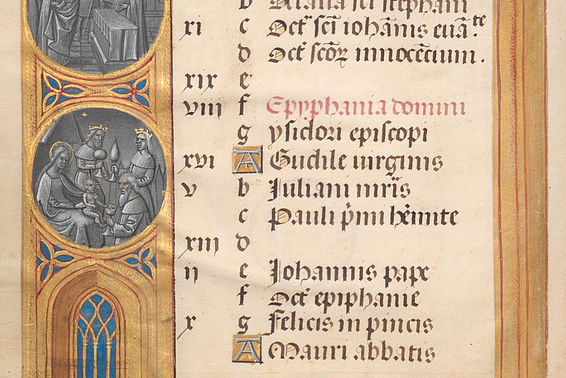 b Octaua sci stephani
xi c Oct̄ scī iohānis euāⁿte
d Oct̄ scōꝝ innocēcium.
xix e
viii f Epyphania domini
g ysidori episcopi
xvi A Gudile uirginis
v b Juliani mr̄is
c Pauli p̄mi hēmite
xiii d
ii e Johannis pape
f Oct̄ epiphanie
x g Felicis in pincis
A Mauri abbatis